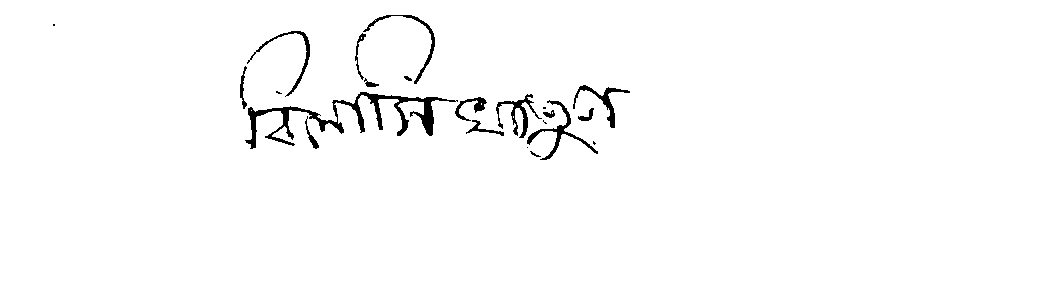 বিলাসি খাতুন